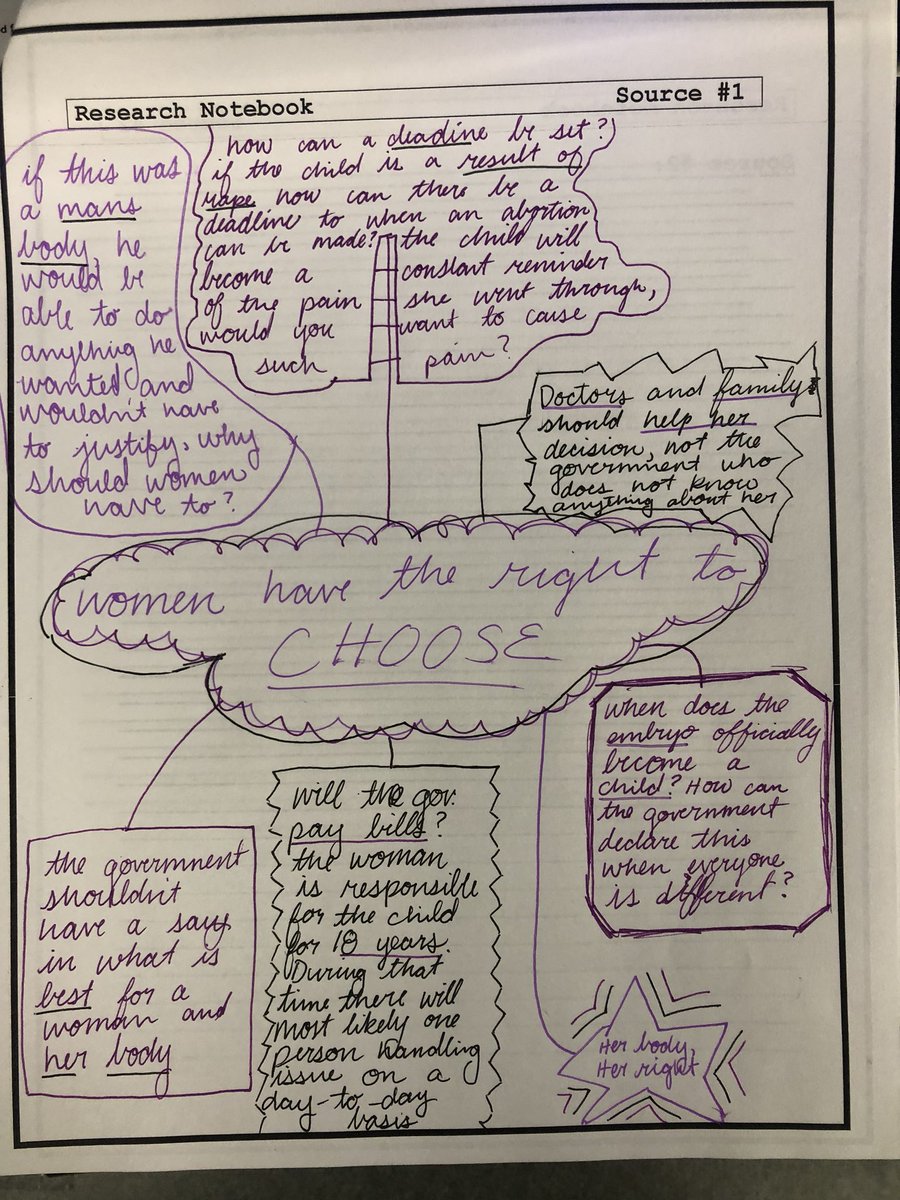 Research Notebook
Source #1
if this was
a mans
body, he
would be
able to do
anything he
wanted and
wouldn't have
to justify, why
should women
have to?
how can a deadine be set?
if the child is a result of
rape how can there be a
deadline to when an abortion
can be made? the child will
become a constant reminder
of the pain she went through,
would you want to cause
such pain?
Doctors and family
should help her
decision, not the
government who
does not know
anything about her
women have the right to
CHOOSE
when does the
embryo officially
become a
child? How can
the government
declare this
when everyone
is different?
the government
shouldn't
have a say
in what is
best for a
woman and
her body
will the gov.
pay bills?
the woman
is responsible
for the child
for 18 years.
During that
time there will
most likely one
person handling
issue on a
day-to-day
basis
Her body,
Her right